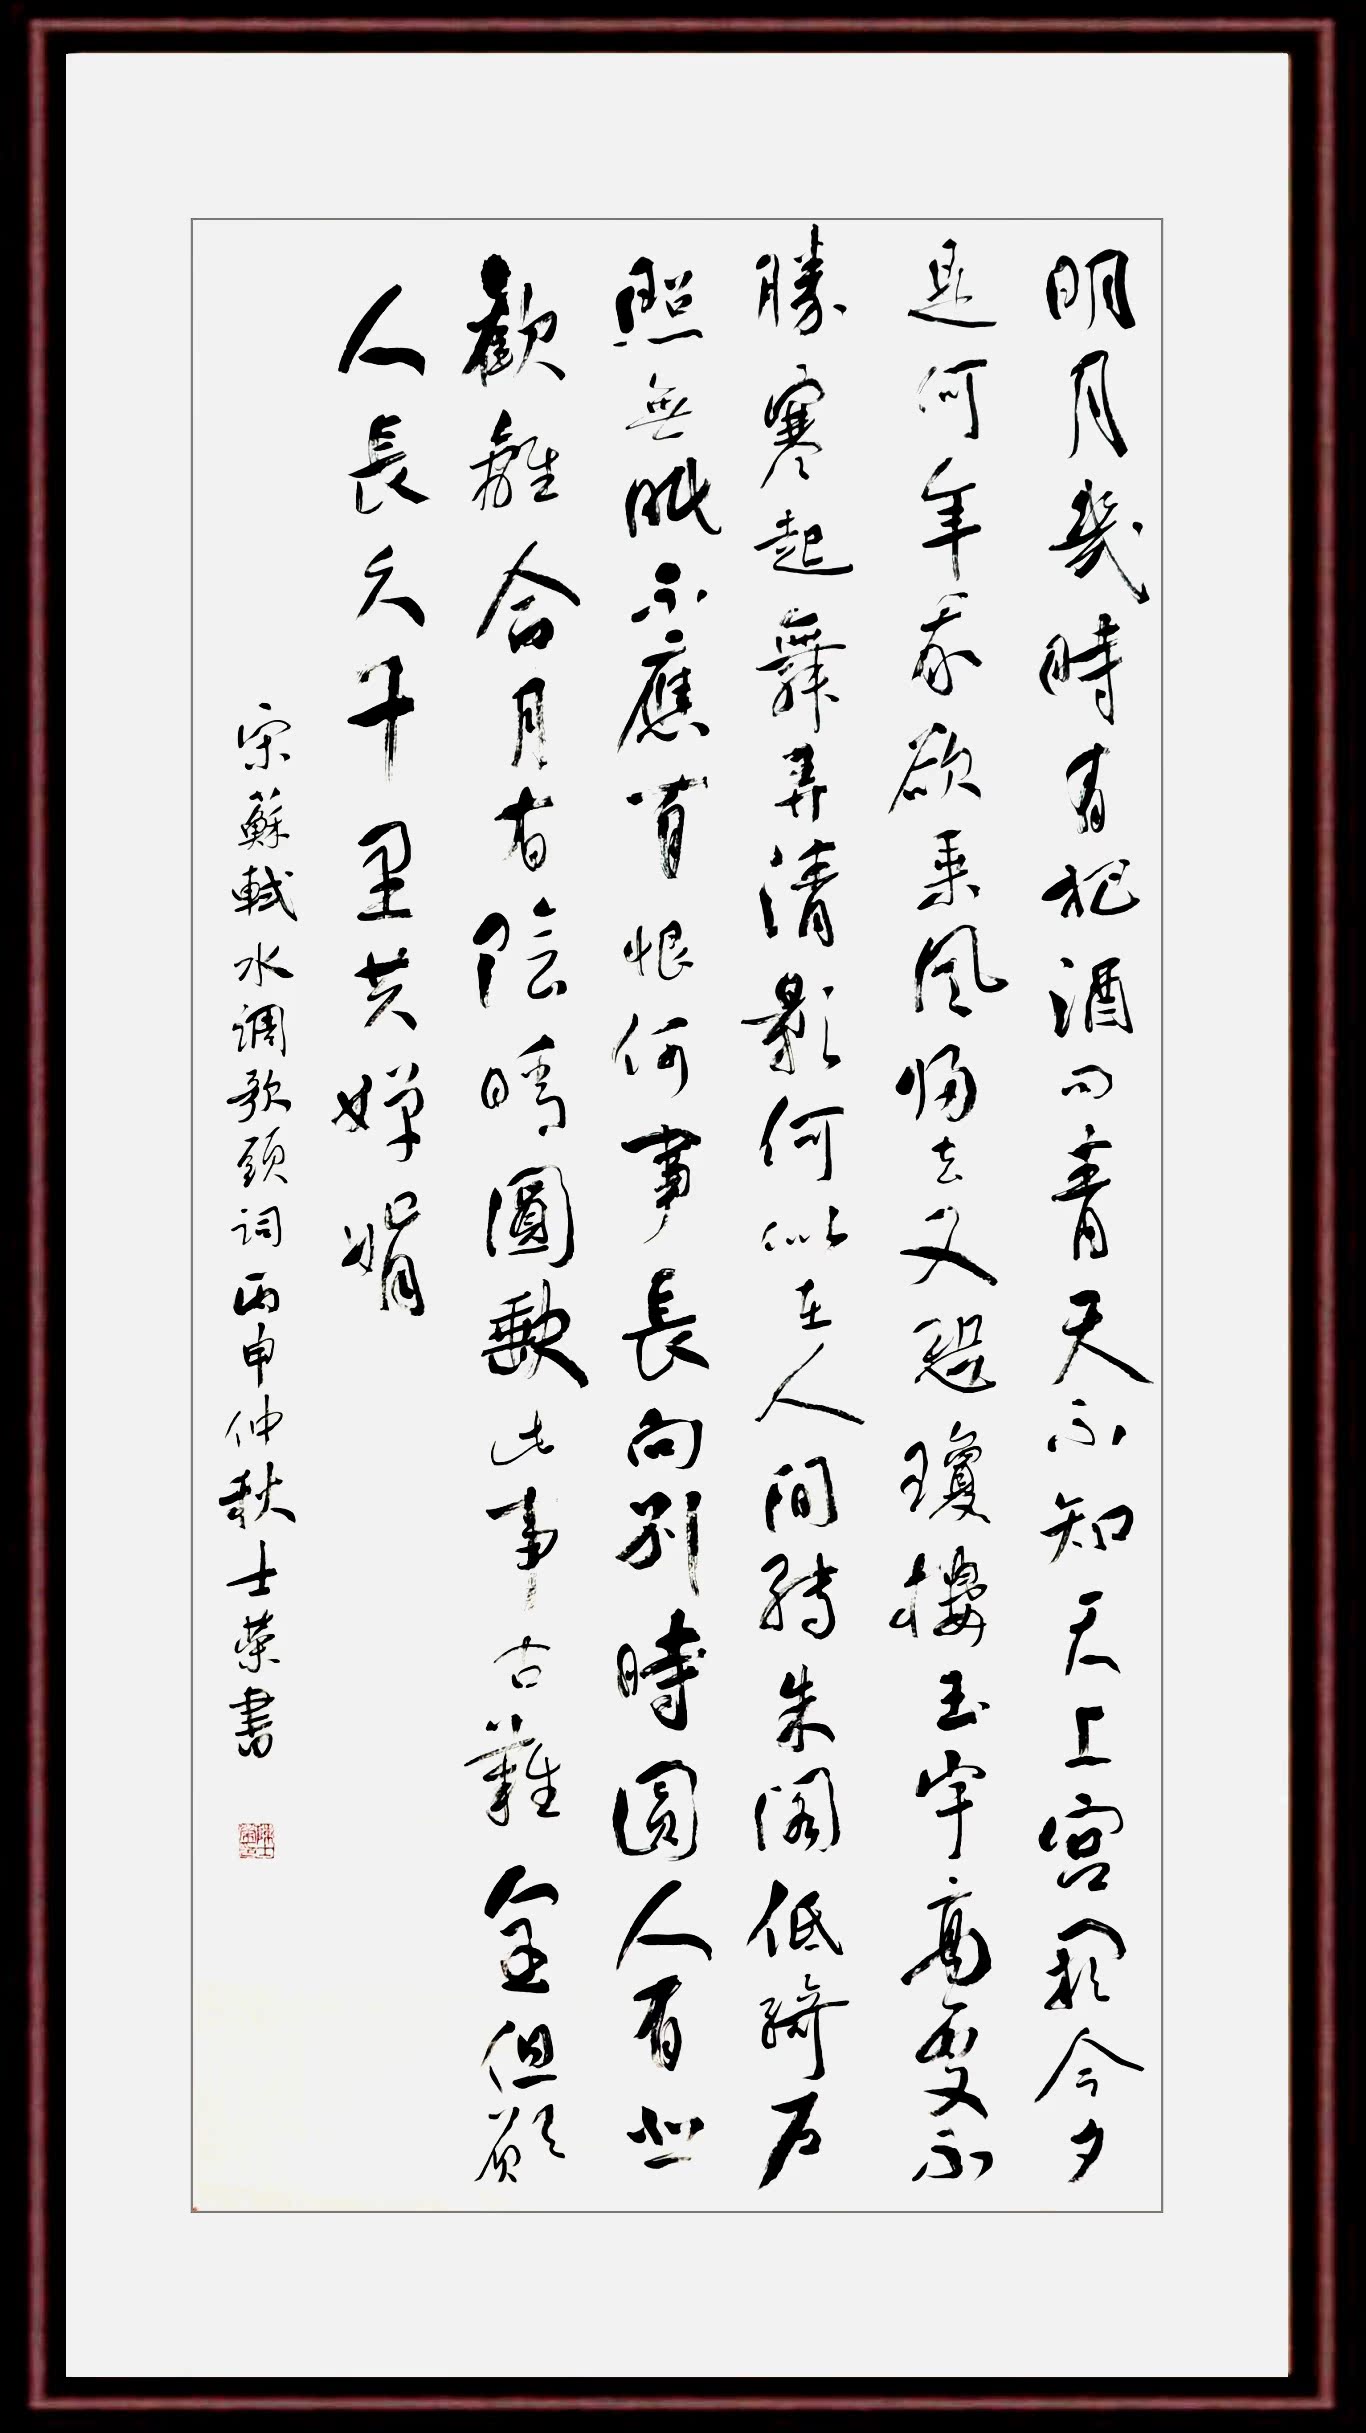 明月幾時有把酒問青天不知天上宮闕今夕
是何年我欲乘風歸去又恐瓊樓玉宇高處不
勝寒起舞弄清影何似在人間轉朱閣低綺戶
照無眠不應有恨何事長向別時圓人有悲
歡離合月有陰晴圓缺此事古難全但願
人長久千里共嬋娟
宋蘇軾水調歌頭詞丙申仲秋士榮書